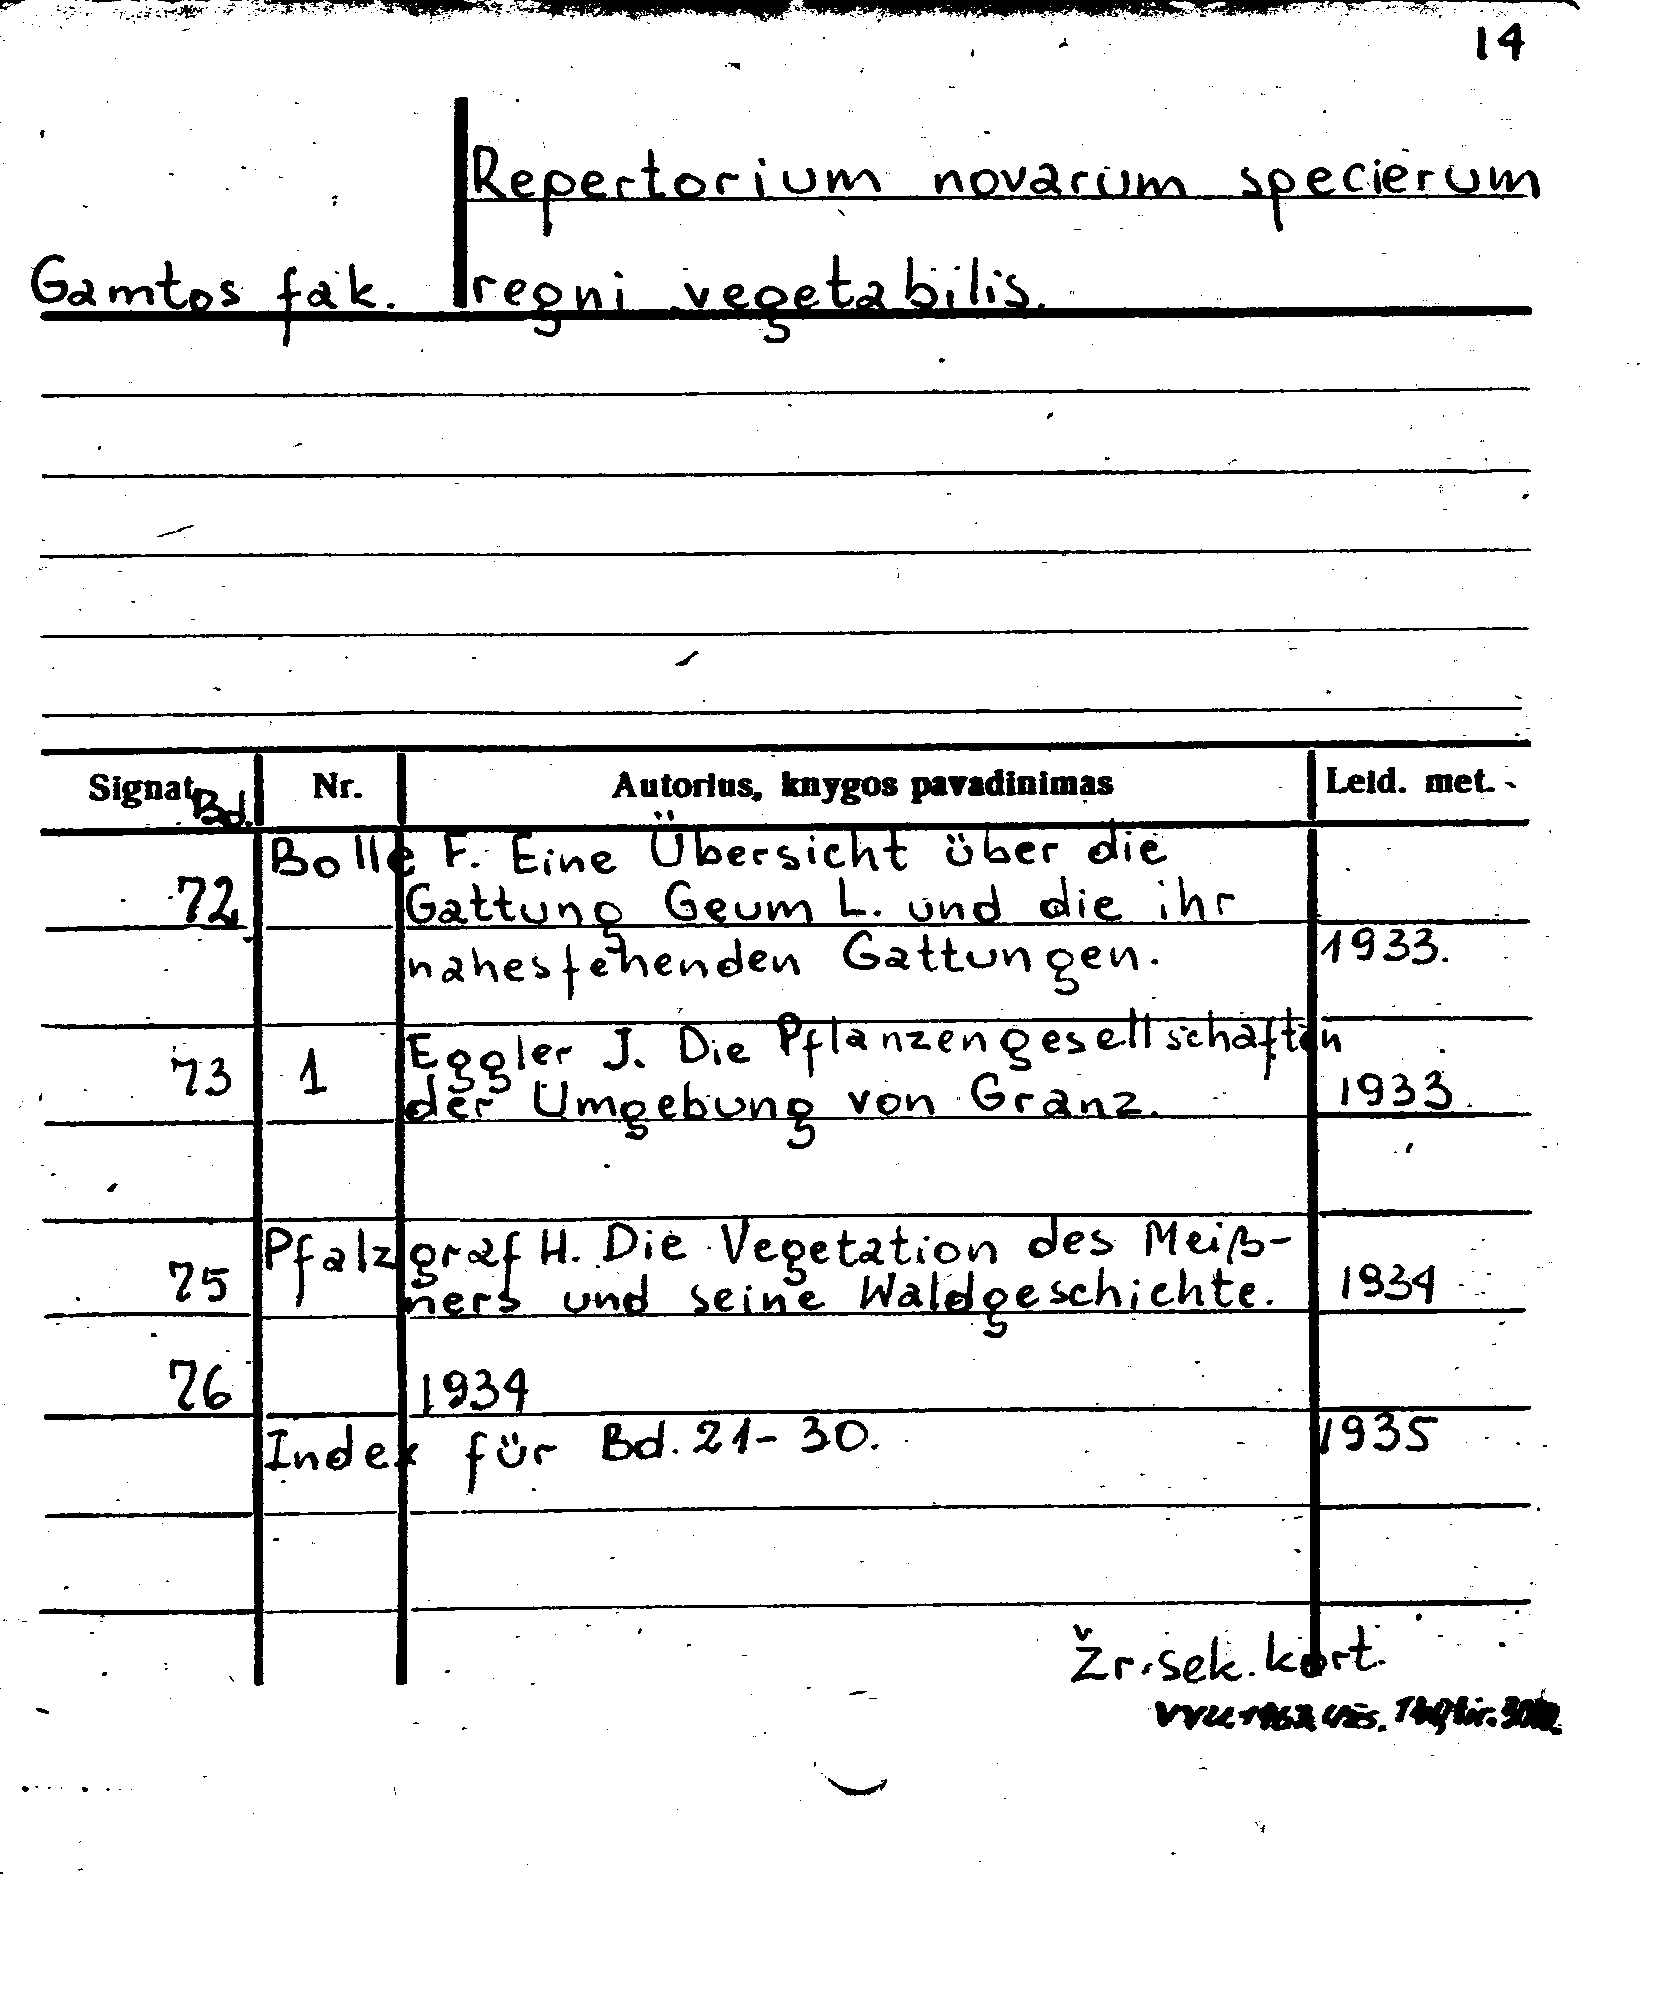 14
Repertorium novarum specierum
Gamtos fak. regni vegetabilis.
Signat. Bd. Nr. Autorius, knygos pavadinimas Leid. met.
Bolle F. Eine Übersicht über die
72 Gattung Geum L. und die ihr
nahestehenden Gattungen. 1933.
Eggler J. Die Pflanzengesellschaften
73 1 der Umgebung von Granz. 1933.
Pfalzgraf H. Die Vegetation des Meiß-
75 ners und seine Waldgeschichte. 1934
76 1934
Index für Bd. 21-30. 1935
Žr. sek. kort.